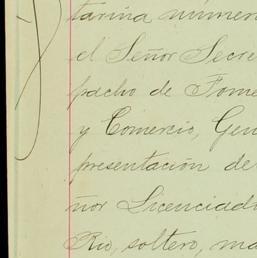 tarina número
el Señor Secre
pacho de Fome
y Comercio, Gen
presentación de
ñor Licenciad
Rio, soltero, ma